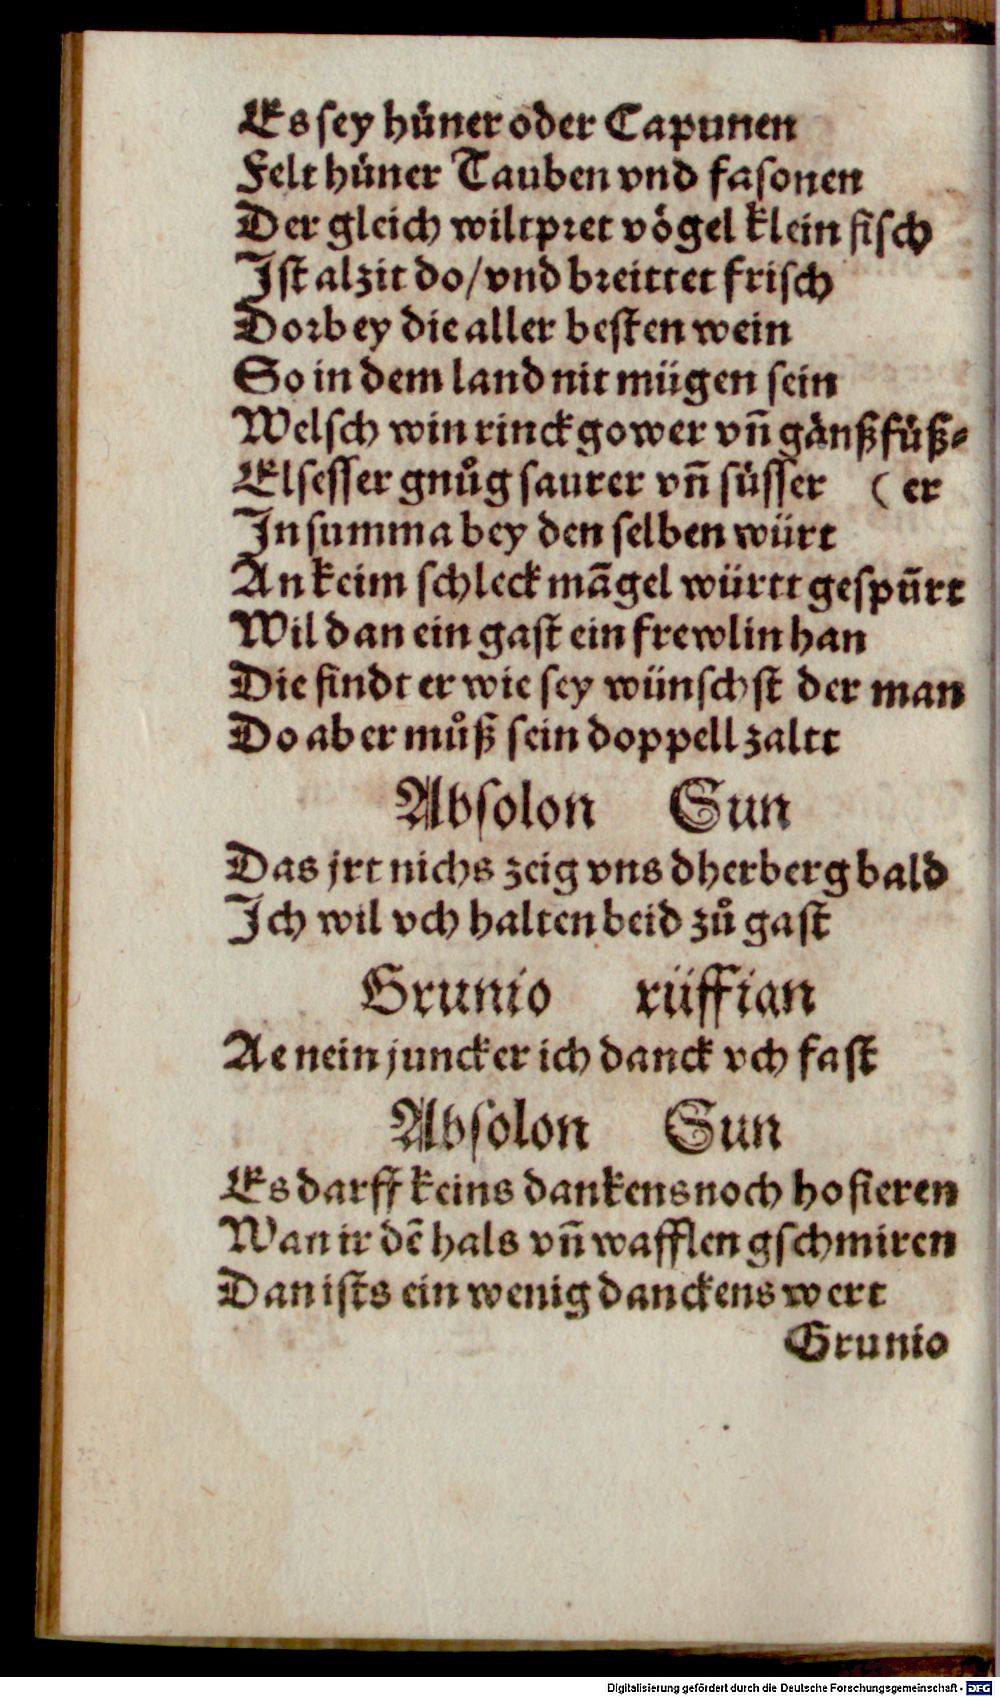 Es ſey huͤner oder Capunen
Felt huͤner Tauben vnd faſonen
Der gleich wiltpꝛet voͤgel klein fiſch
Iſt alzit do/ vnd bꝛeittet friſch
Doꝛbey die aller beſten wein
So in dem land nit mügen ſein
Welſch win rinckgower vn̄ gaͤnßfuͤß⸗
Elſeſſer gnuͦg ſaurer vn̄ ſuͤſſer (er
In ſumma bey den ſelben würt
An keim ſchleck ma̅gel württ geſpu̅rt
Wil dan ein gaſt ein frewlin han
Die findt er wie ſey wünſchſt der man
Do aber muͦß ſein doppell zaltt
Abſolon Sun
Das jrt nichs zeig vns dherberg bald
Ich wil vch halten beid zuͦ gaſt
Grunio rüffian
Ae nein juncker ich danck vch faſt
Abſolon Sun
Es darff keins dankens noch hoſieren
Wan ir dē hals vn̄ wafflen gſchmiren
Dan iſts ein wenig danckens wert
Grunio
Digitalisierung gefördert durch die Deutsche Forschungsgemeinschaft - DFG